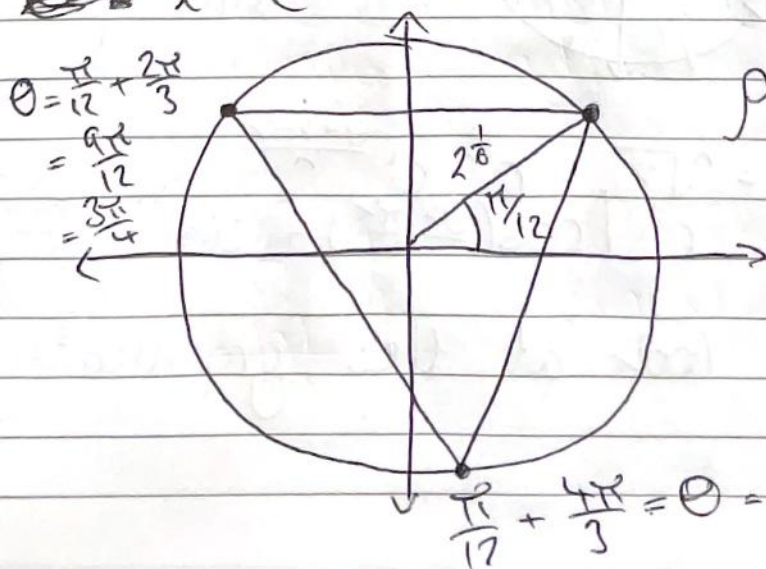 θ = π/12 + 2π/3
= 9π/12
= 3π/4
ρ
2^(1/6)
π/12
π/12 + 4π/3 = θ =